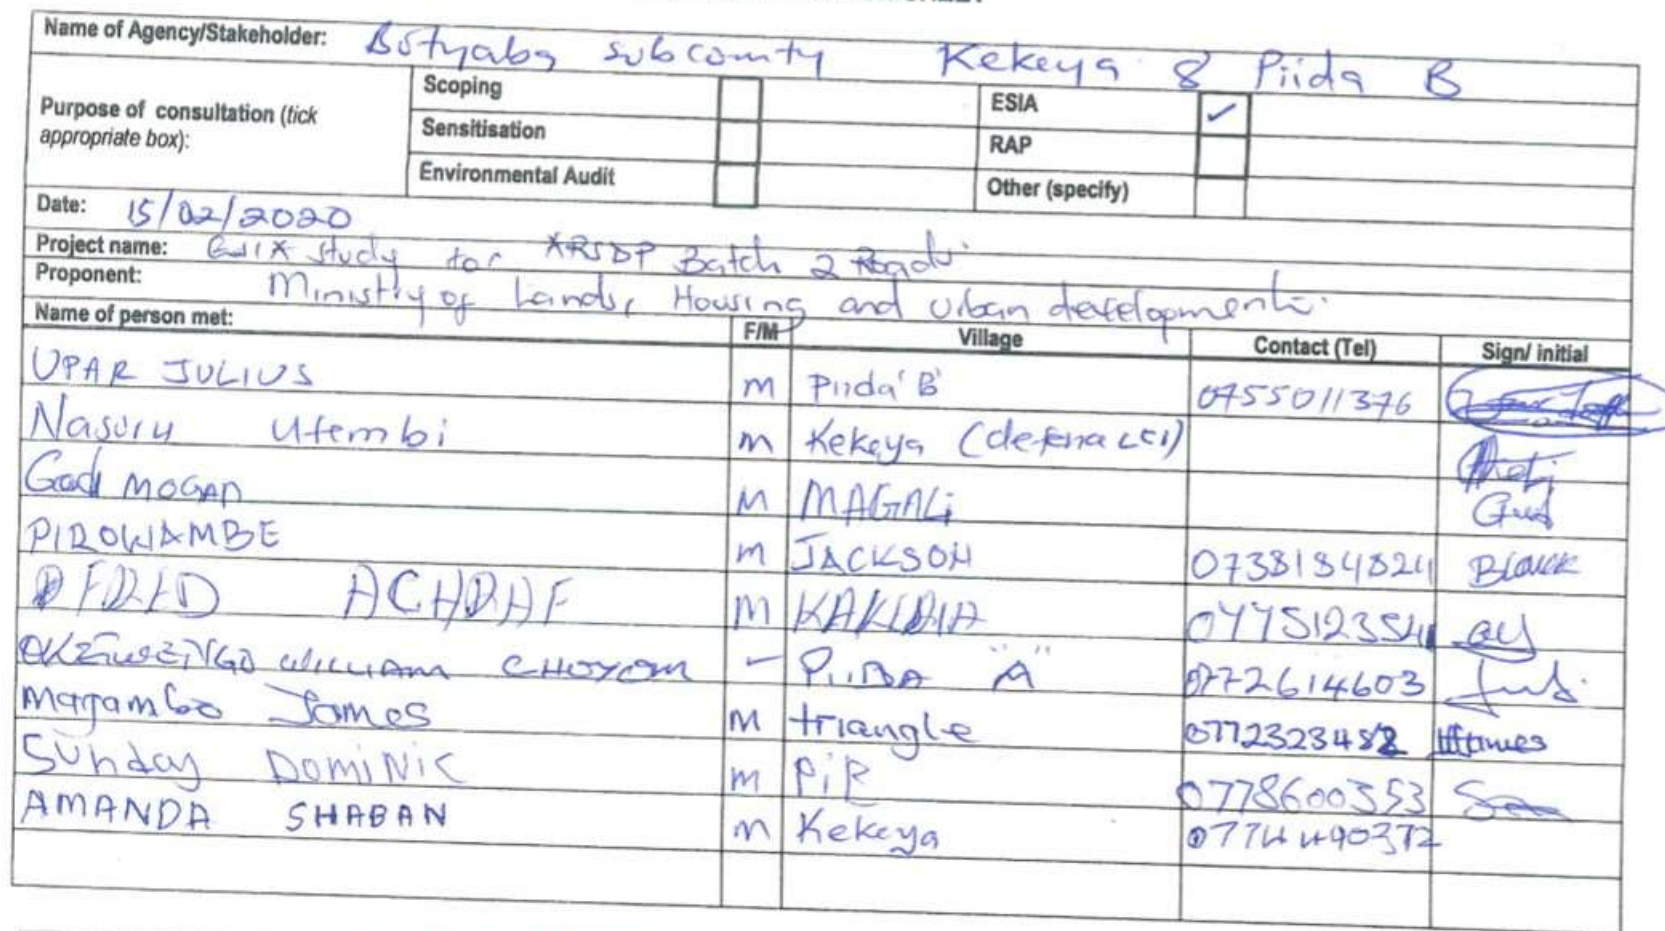 Name of Agency/Stakeholder: Botyaba subcounty Kekeya & Piida B
Purpose of consultation (tick appropriate box):
Scoping ESIA ✓
Sensitisation RAP
Environmental Audit Other (specify)
Date: 15/02/2020
Project name: ESIA study for ARSDP Batch 2 Roads
Proponent: Ministry of Lands, Housing and Urban development
Name of person met: F/M Village Contact (Tel) Sign/ initial
UPAR JULIUS M Piida 'B' 0755011376
Nasuru Utembi M Kekeya (defense LC1)
Godi MOGAD M MAGALi Gud
PIROWAMBE M JACKSON 0738184824 Blauck
ACHRAF M
WILLIAM - PiiDA "A" 0772614603
Magambo James M triangle James
Sunday DOMINIC M 0778600353
AMANDA SHABAN M Kekeya 0774490372